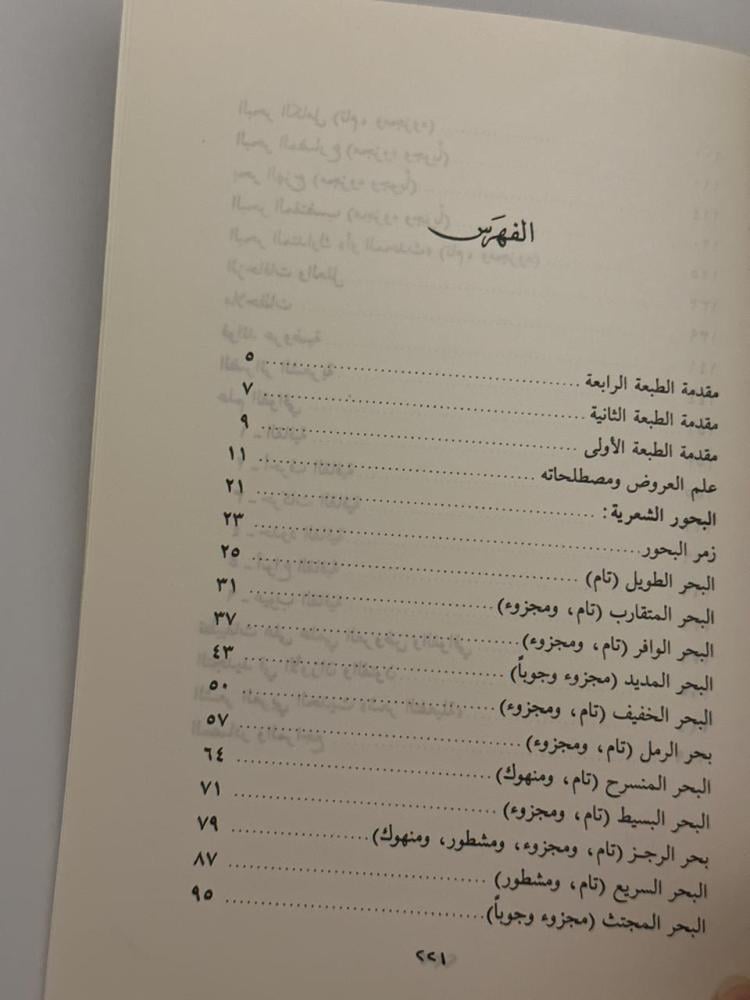 الفهرس
مقدمة الطبعة الرابعة ٥
مقدمة الطبعة الثانية ٧
مقدمة الطبعة الأولى ٩
علم العروض ومصطلحاته ١١
البحور الشعرية: ٢١
زمر البحور ٢٣
البحر الطويل (تام) ٢٥
البحر المتقارب (تام، ومجزوء) ٣١
البحر الوافر (تام، ومجزوء) ٣٧
البحر المديد (مجزوء وجوباً) ٤٣
البحر الخفيف (تام، ومجزوء) ٥٠
بحر الرمل (تام، ومجزوء) ٥٧
البحر المنسرح (تام، ومنهوك) ٦٤
البحر البسيط (تام، ومجزوء) ٧١
بحر الرجز (تام، ومجزوء، ومشطور، ومنهوك) ٧٩
البحر السريع (تام، ومشطور) ٨٧
البحر المجتث (مجزوء وجوباً) ٩٥
٢٢١